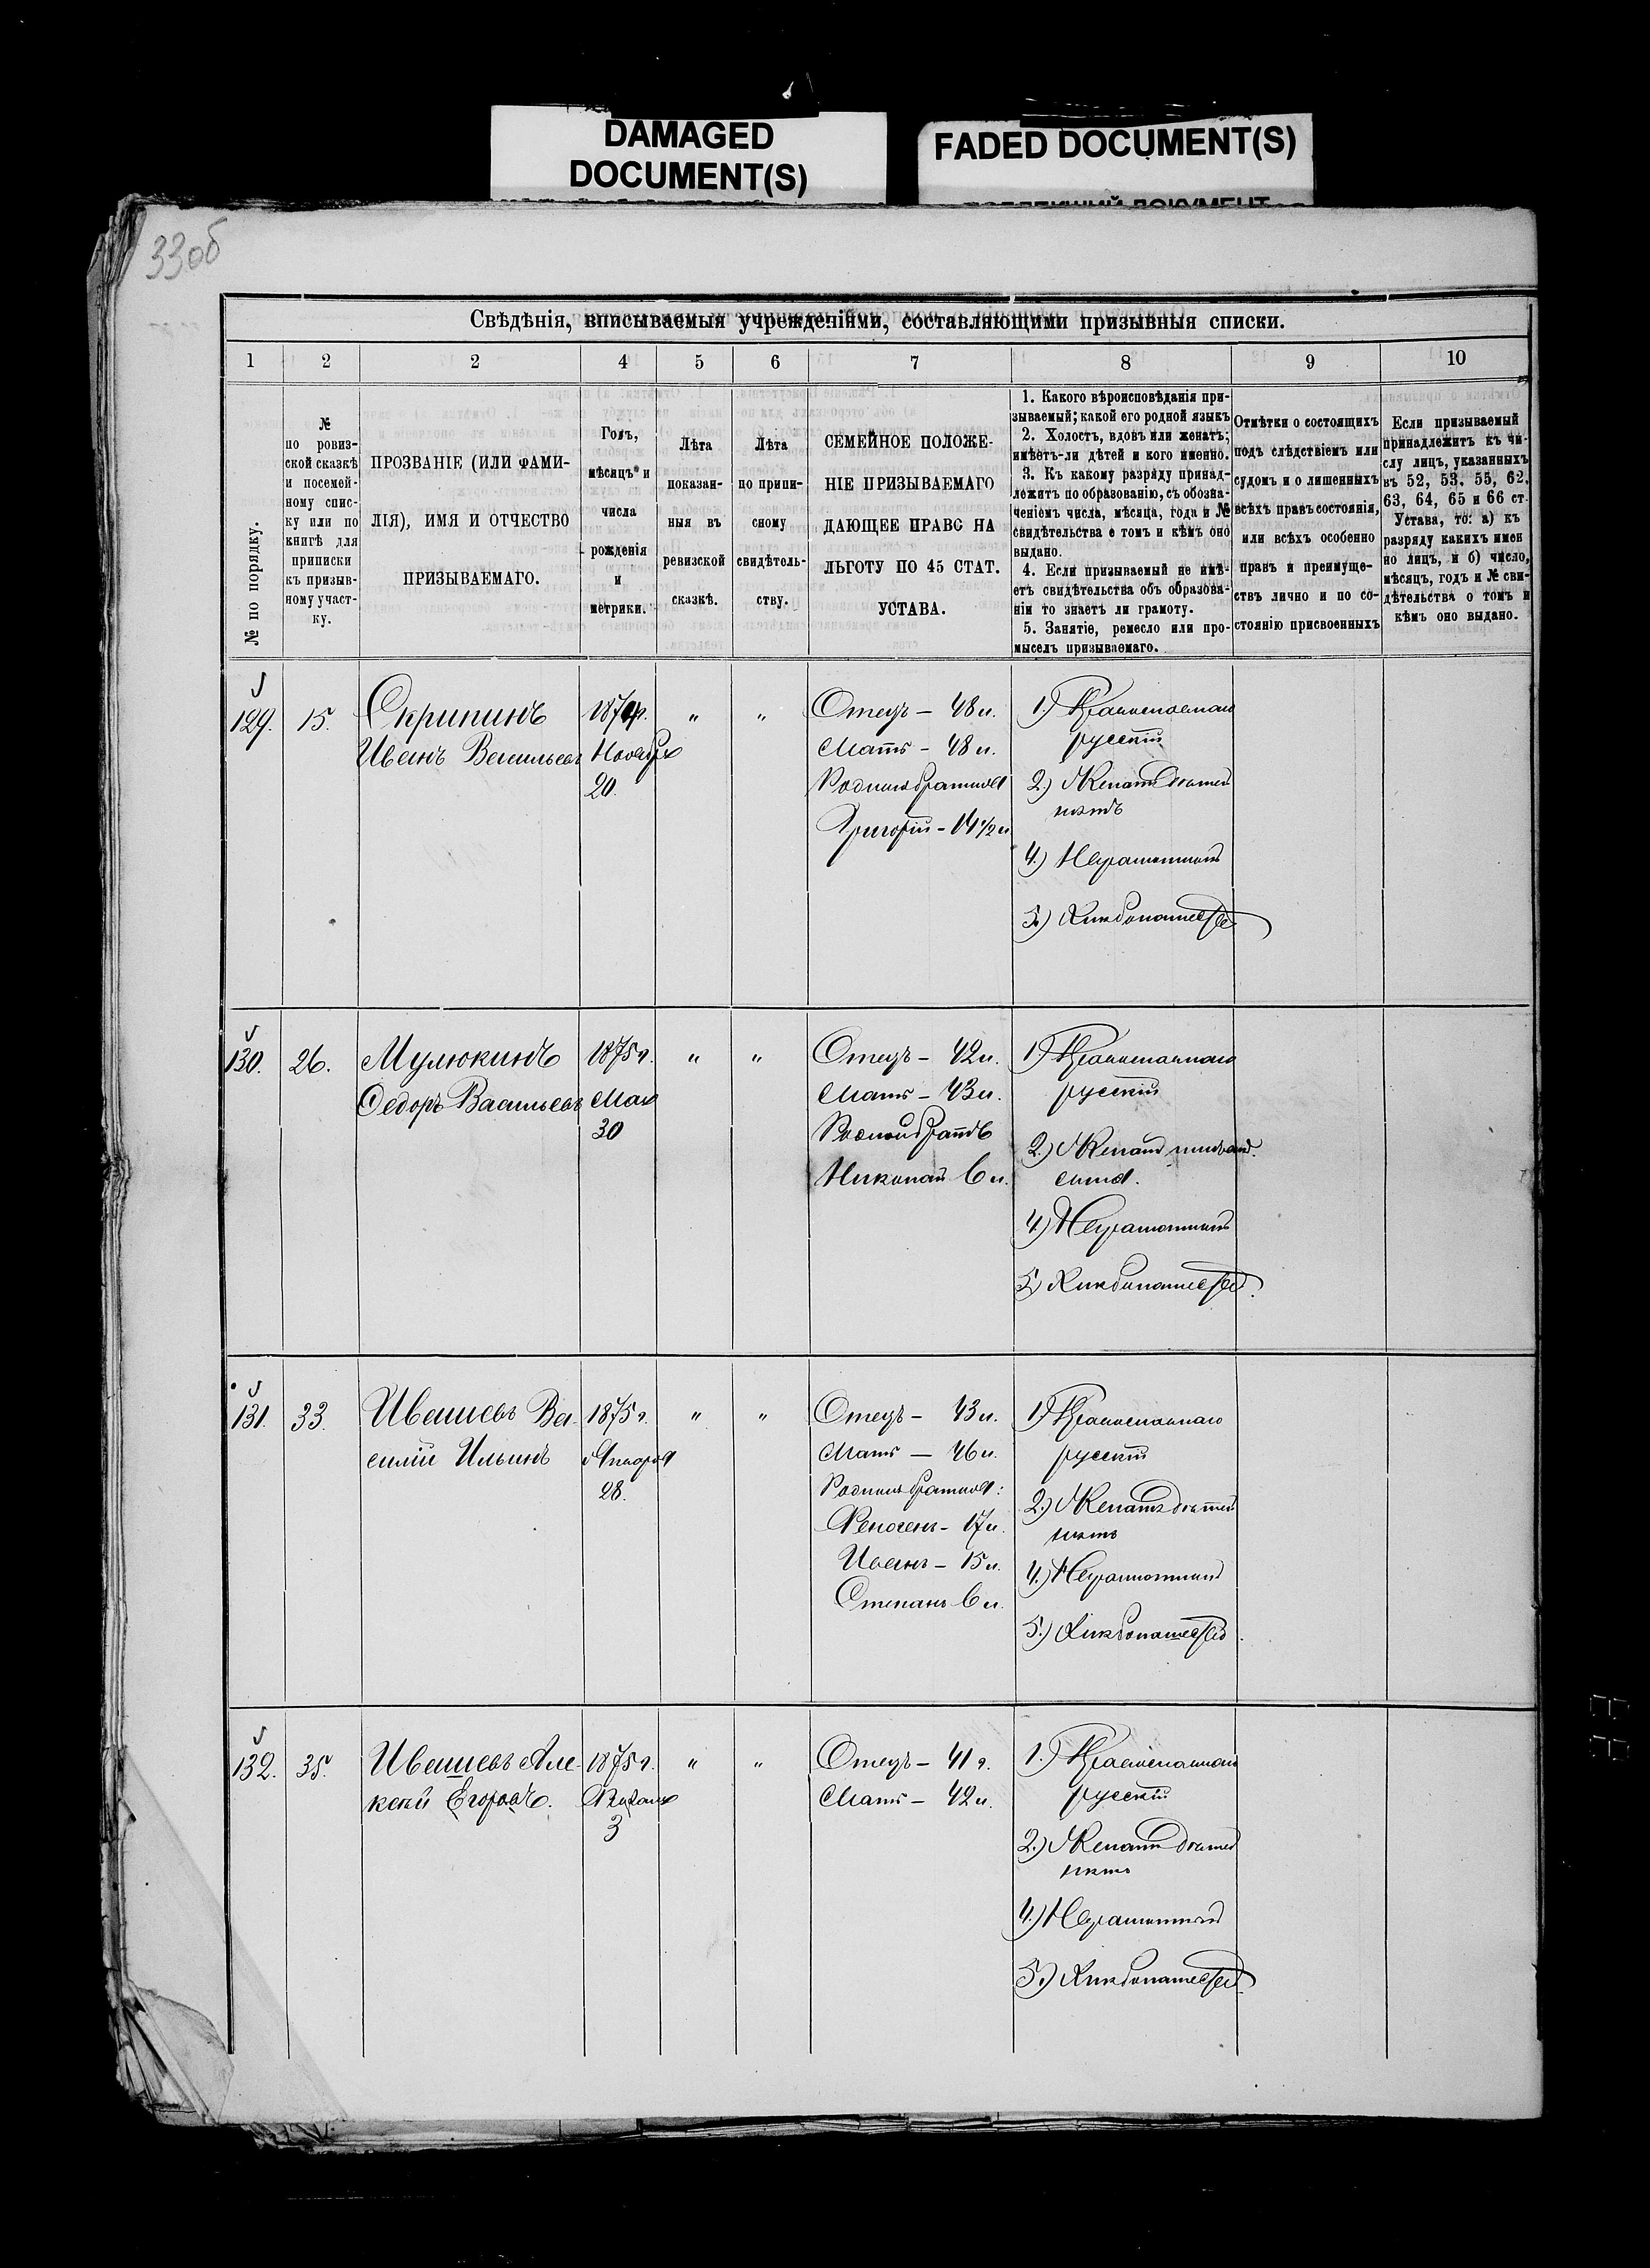 DAMAGED
DOCUMENT(S)
FADED DOCUMENT(S)
33об
Свѣдѣнія, вписываемыя учрежденіями, составляющими призывныя списки.
1 2 2 4 5 6 7 8 9 10
№ по порядку.
№
по ровиз-
ской сказкѣ
и посемей-
ному спис-
ку или по
книгѣ для
приписки
къ призыв-
ному участ-
ку.
ПРОЗВАНІЕ (ИЛИ ФАМИ-
ЛІЯ), ИМЯ И ОТЧЕСТВО
ПРИЗЫВАЕМАГО.
Годъ,
мѣсяцъ и
числа
рожденія
и
метрики.
Лѣта
показан-
ныя въ
ревизской
сказкѣ.
Лѣта
по припи-
сному
свидѣтель-
ству.
СЕМЕЙНОЕ ПОЛОЖЕ-
НІЕ ПРИЗЫВАЕМАГО
ДАЮЩЕЕ ПРАВО НА
ЛЬГОТУ ПО 45 СТАТ.
УСТАВА.
1. Какого вѣроисповѣданія при-
зываемый; какой его родной языкъ
2. Холостъ, вдовъ или женатъ;
имѣетъ-ли дѣтей и кого именно.
3. Къ какому разряду принад-
лежитъ по образованію, съ обозна-
ченіемъ числа, мѣсяца, года и №
свидѣтельства о томъ и кѣмъ оно
выдано.
4. Если призываемый не имѣ-
етъ свидѣтельства объ образова-
ніи то знаетъ ли грамоту.
5. Занятіе, ремесло или про-
мыселъ призываемаго.
Отмѣтки о состоящихъ
подъ слѣдствіемъ или
судомъ и о лишенныхъ
всѣхъ правъ состоянія,
или всѣхъ особенно
правъ и преимуще-
ствъ лично и по со-
стоянію присвоенныхъ
Если призываемый
принадлежитъ къ чи-
слу лицъ, указанныхъ
въ 52, 53, 55, 62,
63, 64, 65 и 66 ст.
Устава, то: а) къ
разряду какихъ имен
но лицъ, и б) число,
мѣсяцъ, годъ и № сви-
дѣтельства о томъ и
кѣмъ оно выдано.
129. 15.
Скрипинъ
Иванъ Васильевъ
1874г.
Ноября
20.
" "
Отецъ – 48 л.
Мать – 48 л.
Родныя братья
Григорій – 14 1/2 л
1.) Православнаго
русскій
2.) Женатъ дѣтей
нѣтъ
4.) Неграмотный
5.) Хлѣбопашество
130. 26.
Мулюкинъ
Ѳедоръ Васильевъ
1875г.
Мая
30
" "
Отецъ – 42 л.
Мать – 43 л.
Родной братъ
Николай 6 л.
1) Православнаго
русскій
2.) Женатъ
сына.
4.) Неграмотный
5.) Хлѣбопашество.
131. 33.
Ивашевъ Ва-
силій Ильинъ
1875г.
Января
28.
" "
Отецъ – 43 л.
Мать – 46 л.
Родныя братья:
17 л.
Иванъ – 15 л.
Степанъ 6 л.
1) Православнаго
русскій
2.) Женатъ дѣтей
нѣтъ
4.) Неграмотный
5.) Хлѣбопашество.
132. 35.
Ивашевъ Але-
ксѣй Егоровъ.
1875г.
3
" "
Отецъ – 41 г.
Мать – 42 л.
1.) Православнаго
русскій
2.) Женатъ дѣтей
нѣтъ
4.) Неграмотный
5.) Хлѣбопашество.